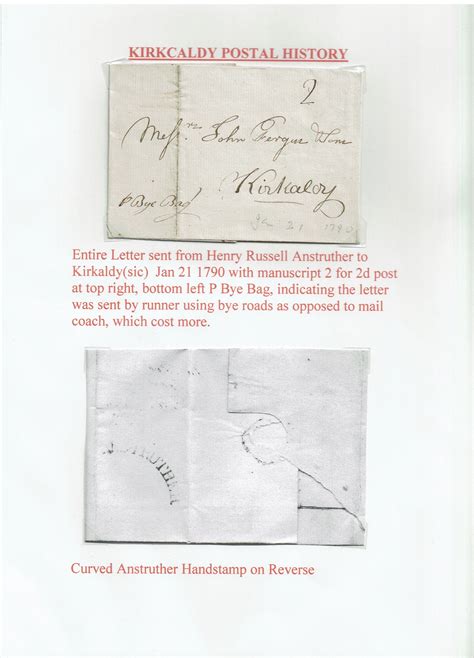 KIRKCALDY POSTAL HISTORY
2
Messrs John Fergus & Sons
Kirkaldy
P Bye Bag
Jan 21 1790
Entire Letter sent from Henry Russell Anstruther to
Kirkaldy(sic)  Jan 21 1790 with manuscript 2 for 2d post
at top right, bottom left P Bye Bag, indicating the letter
was sent by runner using bye roads as opposed to mail
coach, which cost more.
Curved Anstruther Handstamp on Reverse